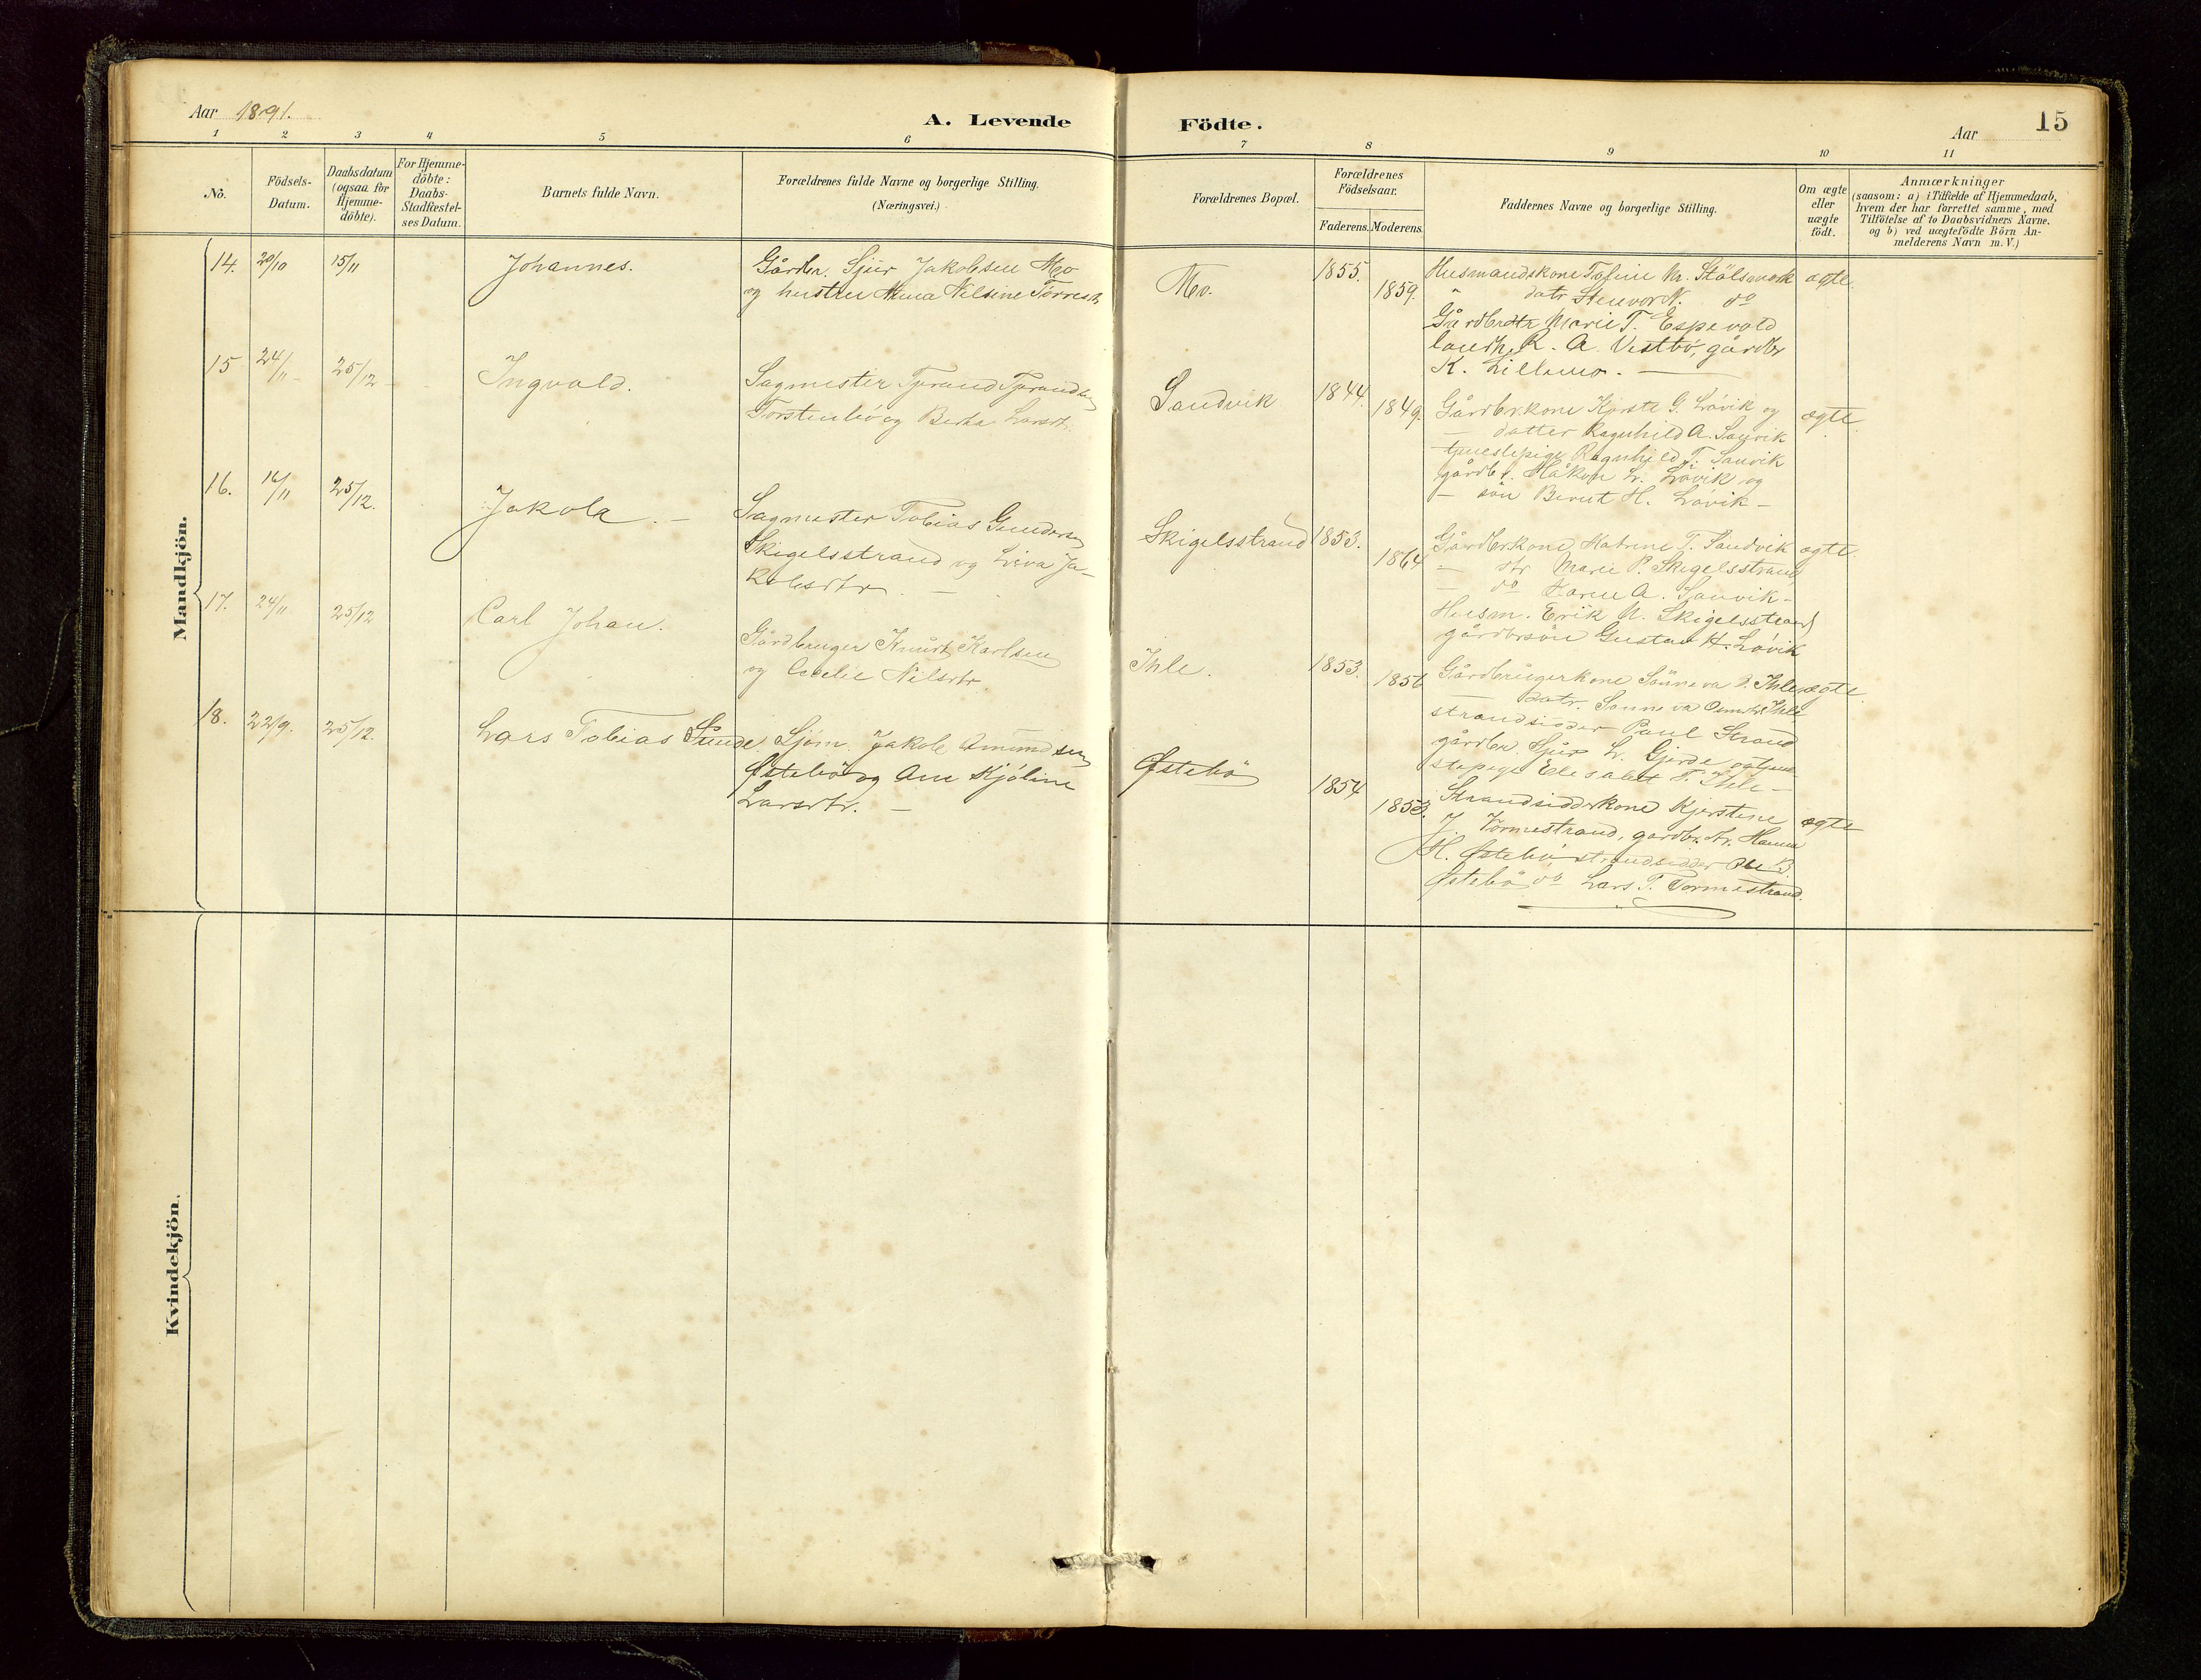 Aar 1891.
A. Levende Födte.
Aar
15
1 2 3 4 5 6 7 8 9 10 11
No.
Födsels-
Datum.
Daabsdatum
(ogsaa for
Hjemme-
döbte).
For Hjemme-
döbte:
Daabs-
Stadfæstel-
ses Datum.
Barnets fulde Navn.
Forældrenes fulde Navne og borgerlige Stilling.
(Næringsvei.)
Forældrenes Bopæl.
Forældrenes
Födselsaar.
Faderens. Moderens.
Faddernes Navne og borgerlige Stilling.
Om ægte
eller
uægte
födt.
Anmærkninger
(saasom: a) i Tilfælde af Hjemmedaab,
hvem der har forrettet samme, med
Tilföielse af to Daabsvidners Navne.
og b) ved uægtefödte Börn An-
melderens Navn m. V.)
Mandkjön.
14. 20/10 15/11 Johannes.
Gårdbr. Sjur Jakobsen Mo
og hustru Anna Nilsine Torresdt.
Mo.
1855.
1859.
Husmandskone Tofine Nr. Stölsmark
" datr. Stenvor N. do
Gårdbrdtr Marie T. Espevold
landh. R. A. Vestbö, gårdbr
K. Lillemo.
ægte.
15 24/11 25/12 Ingvald.
Sagmester Tjerand Tjerandsen
Torstenbö og Berta Larsdt.
Sandvik
1844.
1849.
Gårdbr.kone Kjerste G. Lövik og
— datter Ragnhild A. Sanvik
tjenestepige Ragnhild T. Sanvik
gårdbr. Håkon L. Lövik og
— sön Berent H. Lövik —
ægte.
16. 14/11 25/12. Jakob
Sagmester Tobias Gundersen
Skigelsstrand og Liva Ja-
kobsdtr.
Skigelsstrand
1853.
1864
Gårdbrkone Katrine T. Sandvik
— dtr Marie P. Skigelsstrand
— do Karen A. Sanvik —
Husm. Erik N. Skigelsstrand
gårdbrsön Gustav H. Lövik
ægte.
17. 24/11 25/12 Carl Johan.
Gårdbruger Knut Karlsen
og Cecelie Nilsdtr.
Ihle.
1853.
1856
Gårdbrugerkone Sönneva Ihle
— datr. Sonneva Ihle
strandsidder Paul Strand
gårdbr. Sjur L. Gjerde og tjene-
stepige Elesabet T. Ihle —
ægte.
18. 22/9. 25/12. Lars Tobias Sunde.
Sjöm. Jakob Amundsen
Østebö og Ane Kjöline
Larsdtr. —
Østebö
1854
1853.
Strandsidderkone Kjerstene
J. Vormestrand, gardbr. dtr. Hanna
H. Østebö, strandsidder Ole B.
Østebö do Lars T. Vormestrand.
ægte
Kvindekjön.